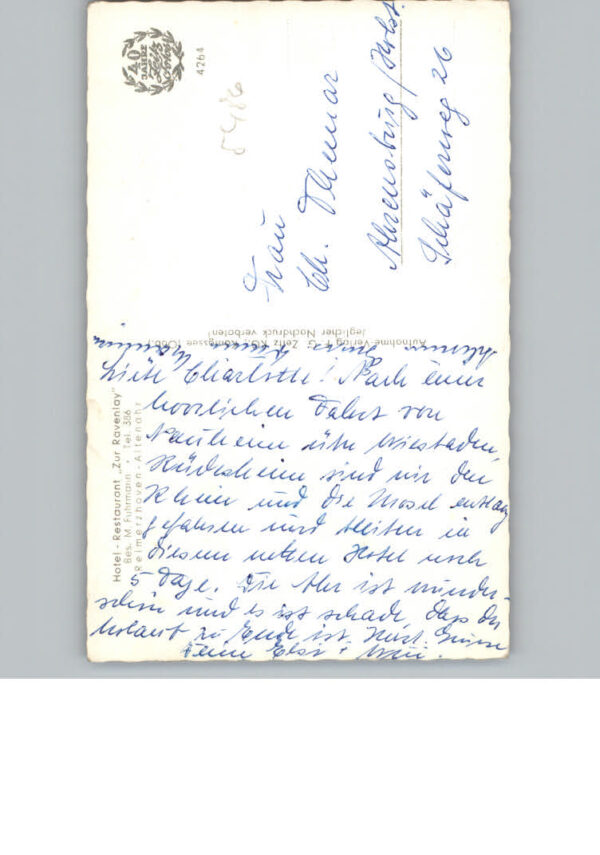 40
JAHRE
4264
Frau
Ch. Themar
Ahrensburg/Holst.
Schäferweg 26
Aufnahme-Verlag F. G. Zeitz KG., Königssee (Obb.)
Jeglicher Nachdruck verboten!
Hotel-Restaurant „Zur Ravenlay"
Bes. M. Fuhrmann • Tel. 386
Reimerzhoven-Altenahr
Liebe Charlotte! Nach einer
herrlichen Fahrt von
Nauheim über Wiesbaden,
Rüdesheim sind wir den
Rhein und die Mosel entlang
gefahren und bleiben in
diesem netten Hotel noch
5 Tage. Die Ahr ist wunder-
schön und es ist schade, dass der
Urlaub zu Ende ist. Herzl. Grüsse